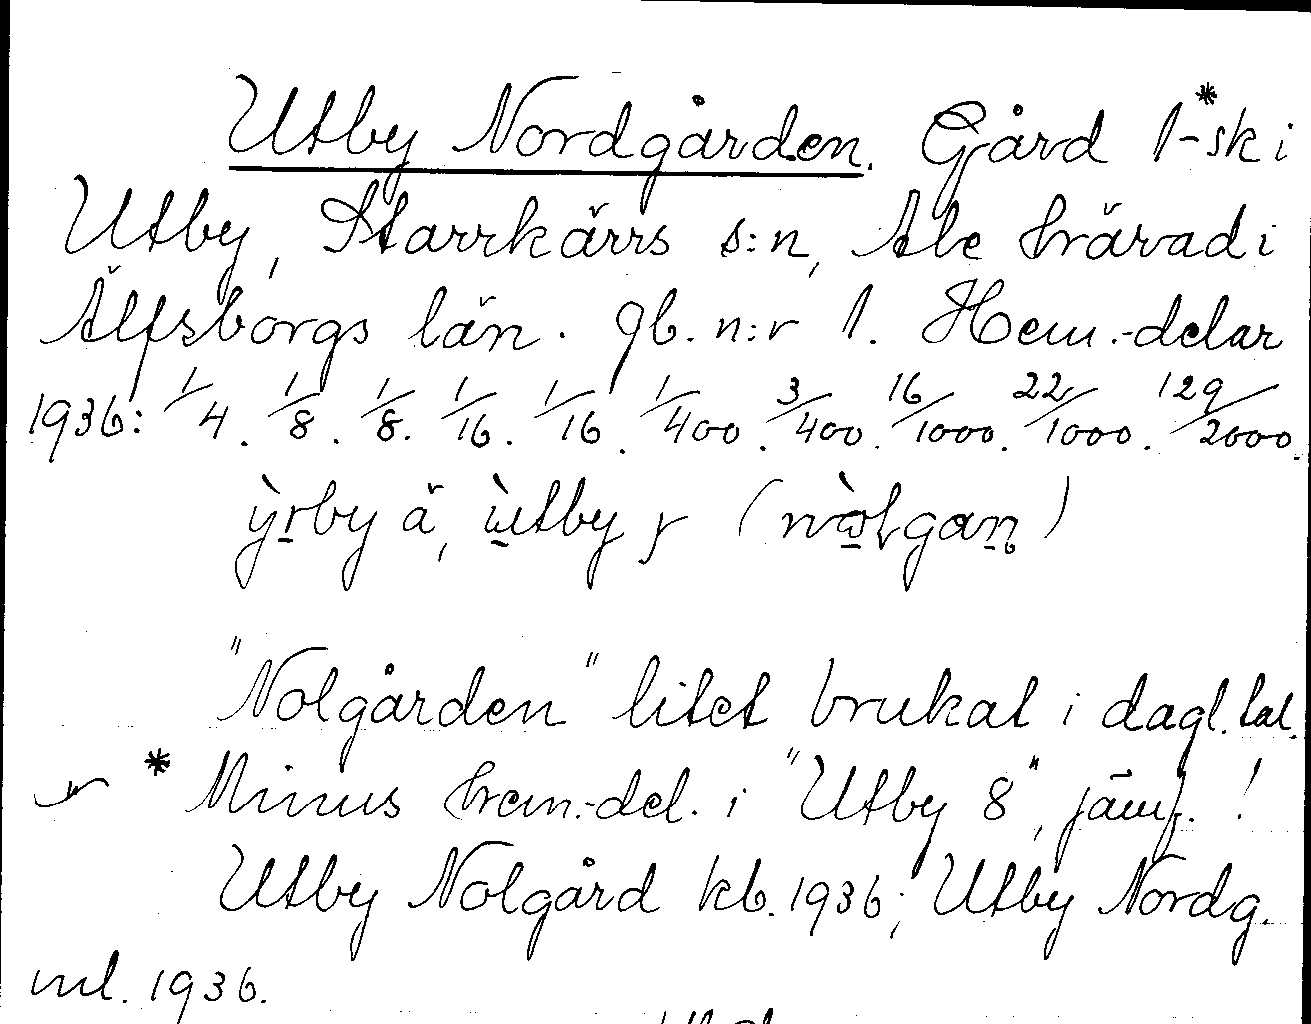 Utby Nordgården. Gård 1-sk* i
Utby, Starrkärrs s:n, Ale härad i
Älfsborgs län. Jb. n:r 1. Hem.-delar
1936: 1/4. 1/8. 1/8. 1/16. 1/16. 1/400. 3/400. 16/1000. 22/1000. 129/2000.
ỳrby ä, ùtby y (nòlgan)
"Nolgården" litet brukat i dagl. tal.
* Minus hem.-del. i "Utby 8", jämf. !
Utby Nolgård kb. 1936; Utby Nordg.
ml. 1936.